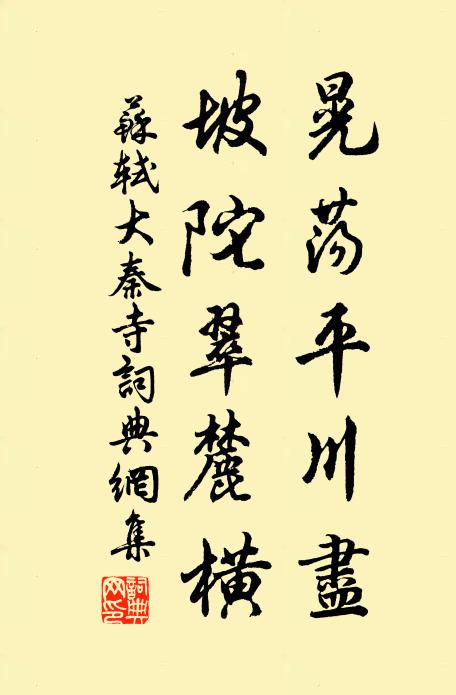 晃蕩平川盡
坡陀翠麓橫
蘇軾大秦寺詞典網集
詞典网印